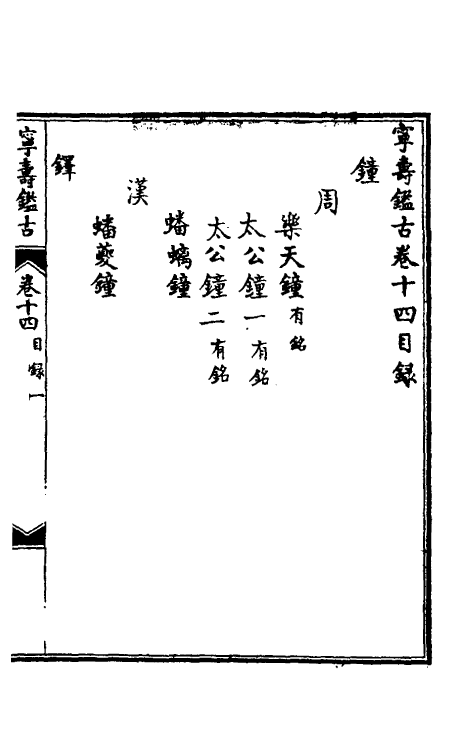 寜壽鑑古卷十四目録
鐘
周
樂天鐘有銘
太公鐘一有銘
太公鐘二有銘
蟠螭鐘
漢
蟠夔鐘
鐸
寜壽鑑古
卷十四目録
一